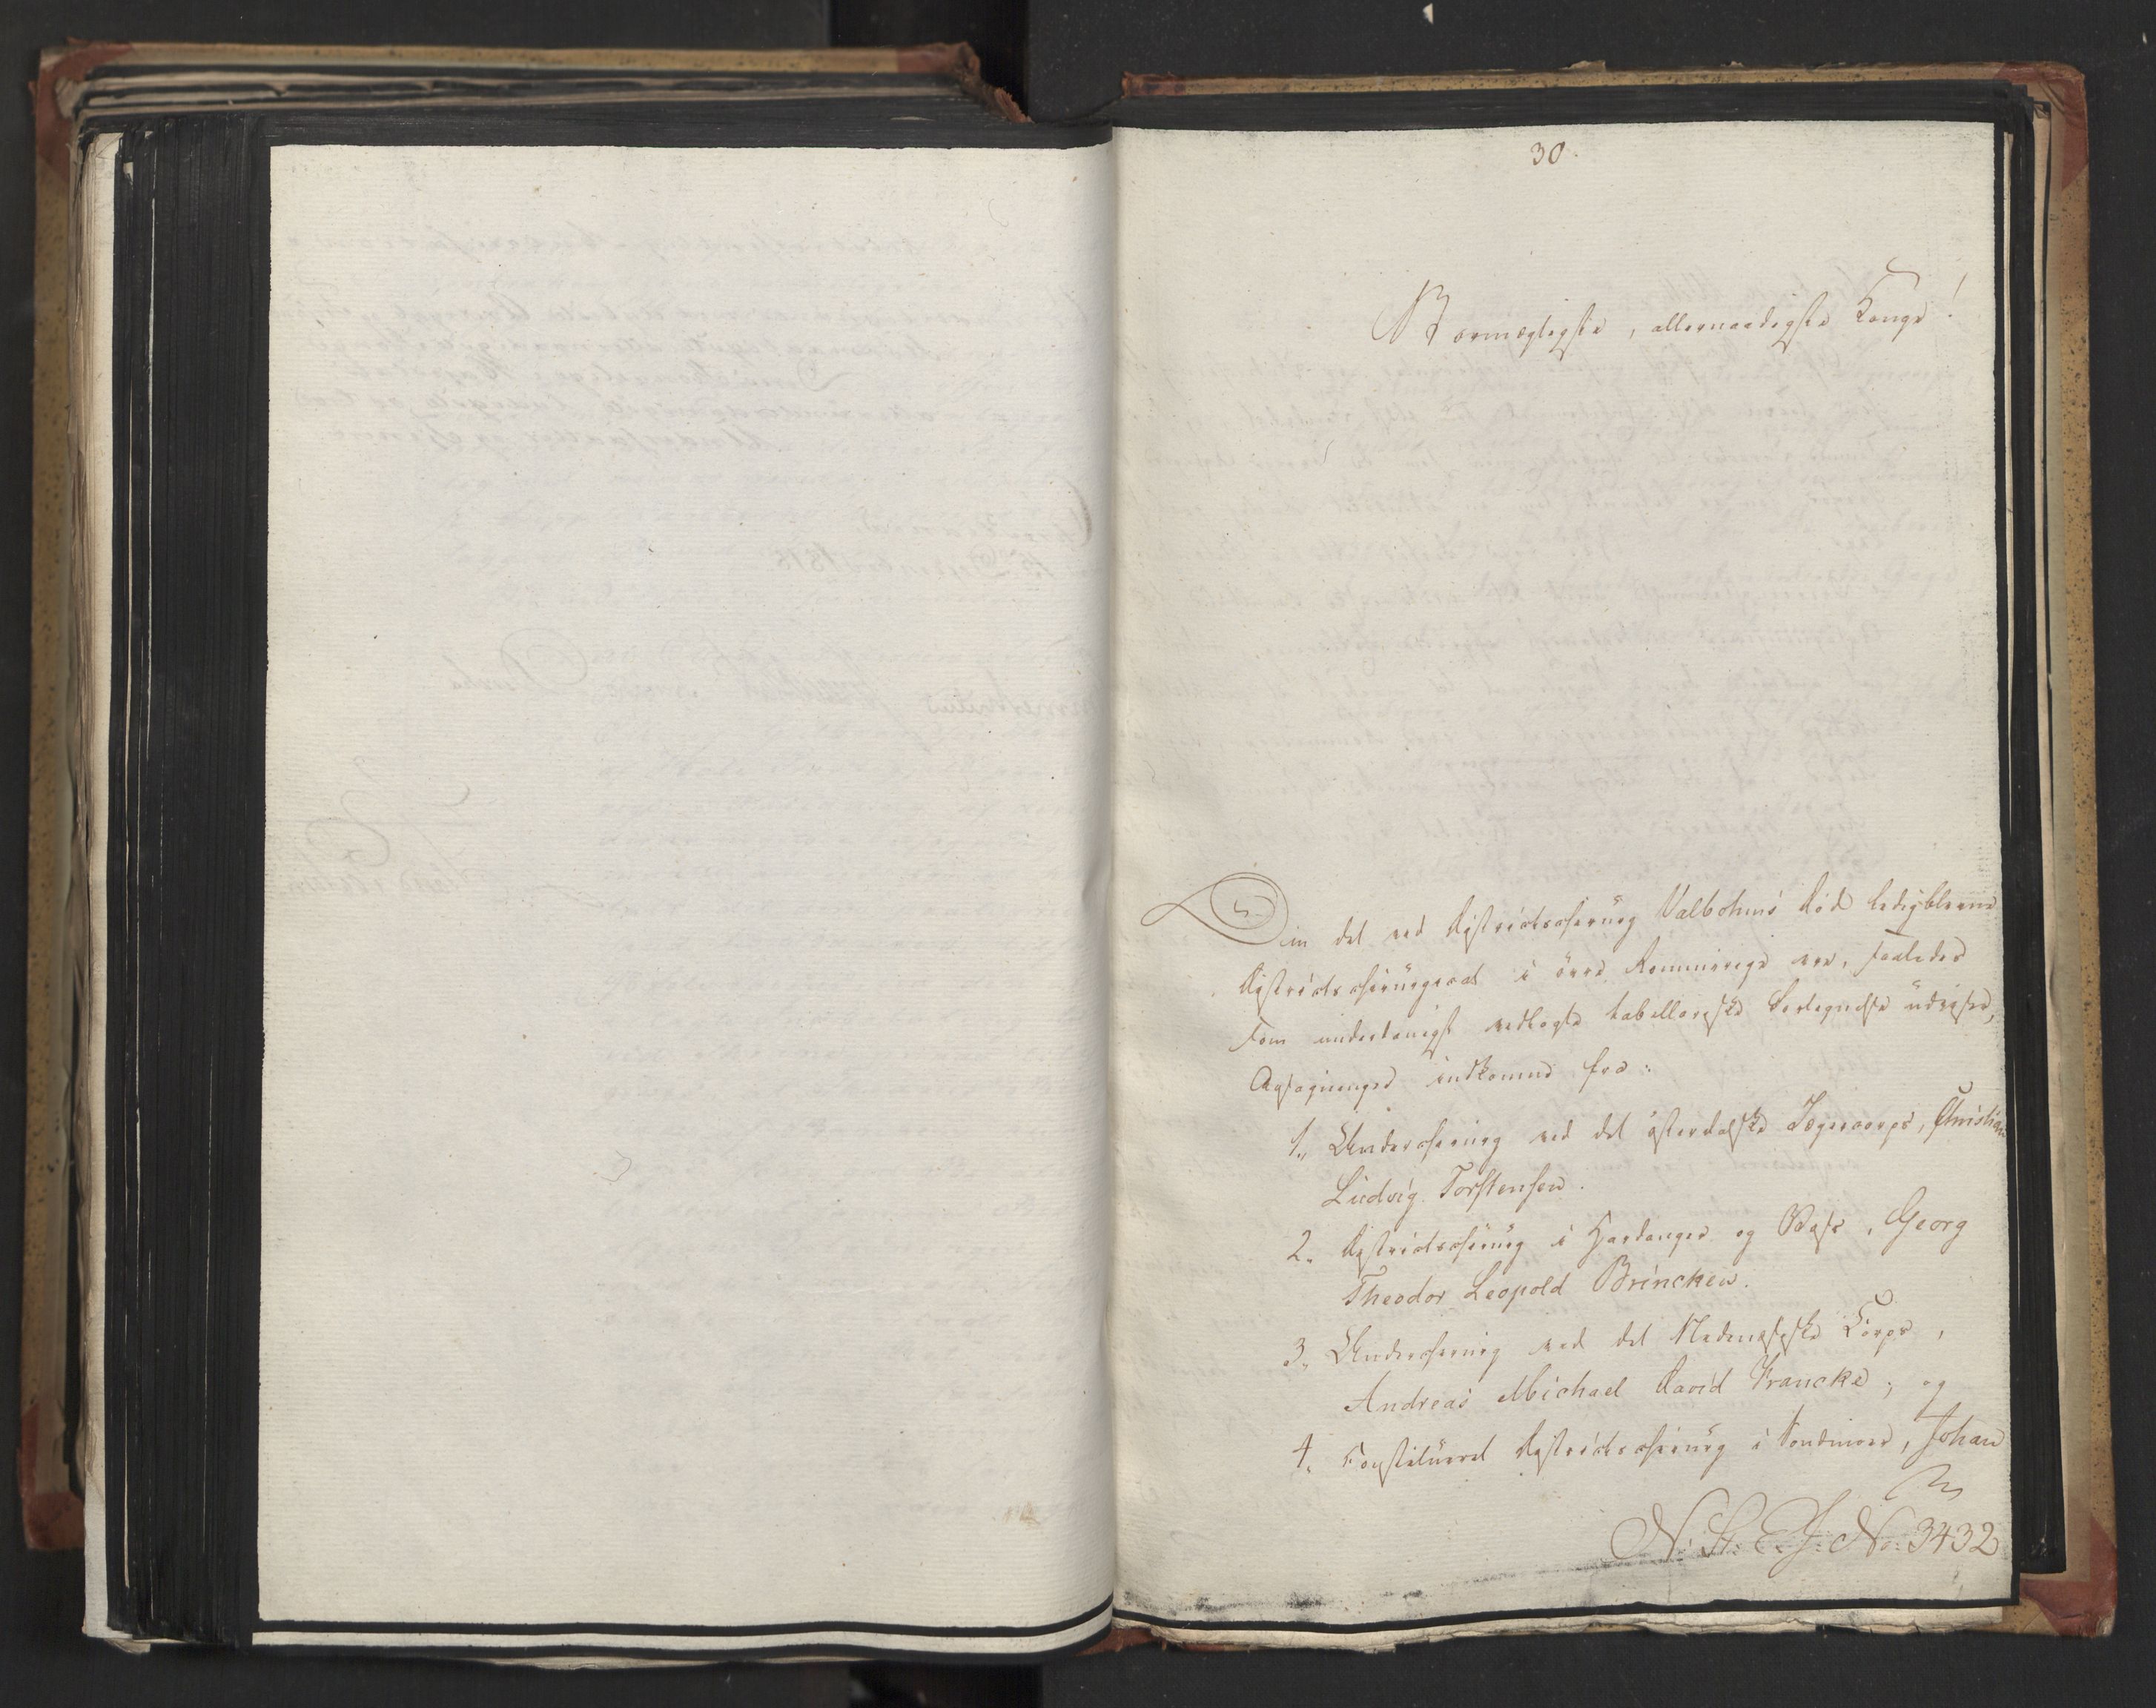 30.
Stormægtigste, allernaadigste Konge!
Om det ved Districtschirurg Valbohms Død ledigblevne
Districtschirurgicat i övre Rommerige ere, saaledes
som underdanigst vedlagte tabellariske Fortegnelse udviser,
Ansøgninger indkomne fra:
1., Underchirurg ved det österdalske Jægercorps, Christian
Ludvig Torstensen.
2. Districtschirurg i Hardanger og Voss, Georg
Theodor Leopold Brincken.
3., Underchirurg ved det Nedenæsske Corps,
Andreas Michael David Francke; og
4. Constitueret Districtschirurg i Nordmoer, Johan
N: St: E: J: No: 3432